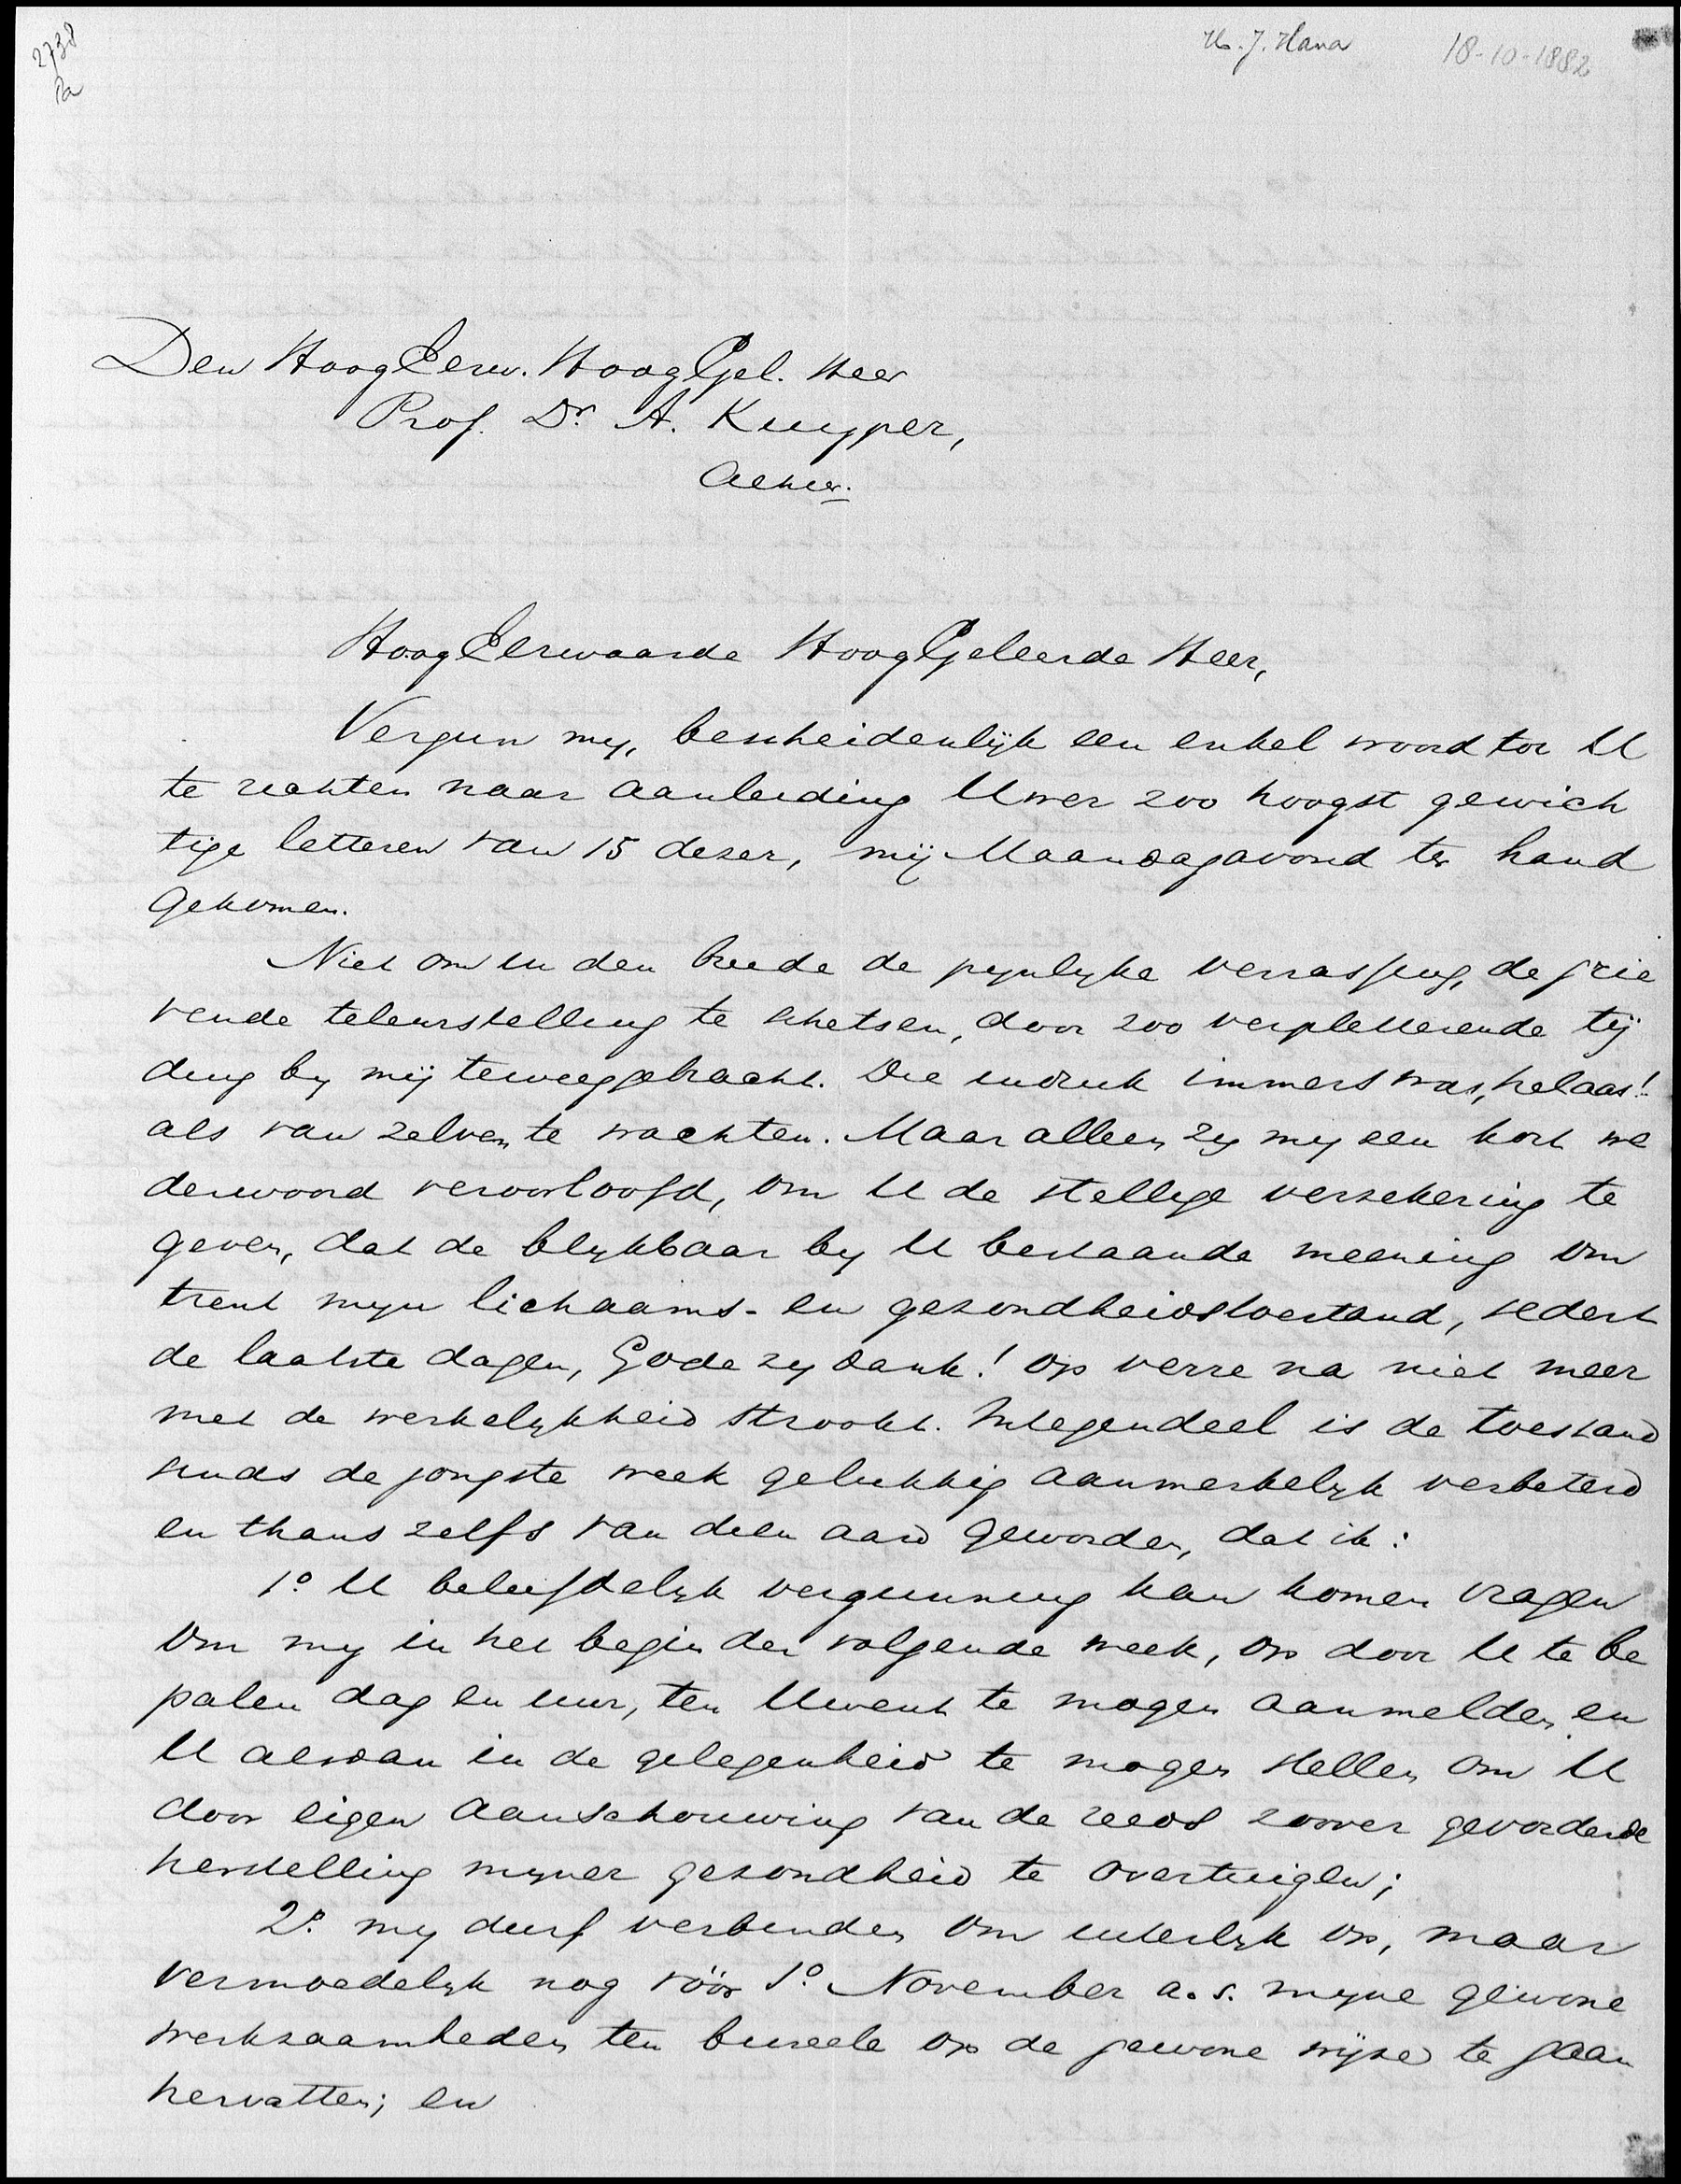 2738
Pa
H. J. Hana
18-10-1882
Den HoogEerw. HoogGel. Heer
Prof. Dr. A. Kuyper,
Alhier.
HoogEerwaarde HoogGeleerde Heer,
Vergun my, bescheidenlijk een enkel woord tot U
te richten naar aanleiding Uwer zoo hoogst gewich
tige letteren van 15 dezer, mij Maandagavond ter hand
gekomen.
Niet om in den breede de pynlyke verrassing, de grie
vende teleurstelling te schetsen, door zoo verpletterende tij
ding by mij teweeggebracht. Die indruk immers was, helaas!
als van zelven te wachten. Maar alleen zy my een kort we
derwoord veroorloofd, om U de stellige verzekering te
geven, dat de blykbaar by U bestaande meening om
trent myn lichaams- en gezondheidstoestand, sedert
de laatste dagen, Gode zy dank! op verre na niet meer
met de werkelykheid strookt. Integendeel is de toestand
sinds de jongste week gelukkig aanmerkelyk verbeterd
en thans zelfs van dien aard geworden, dat ik:
1o. U beleefdelyk vergunning kan komen vragen
om my in het begin der volgende week, op door U te be
palen dag en uur, ten Uwent te mogen aanmelden en
U alsdan in de gelegenheid te mogen stellen om U
door eigen aanschouwing van de reeds zoover gevorderde
herstelling myner gezondheid te overtuigen;
2o. my durf verbinden om uiterlyk op, maar
vermoedelyk nog vóór 1o November a.s. myne gewone
werkzaamheden ten bureele op de gewone wijze te gaan
hervatten; en